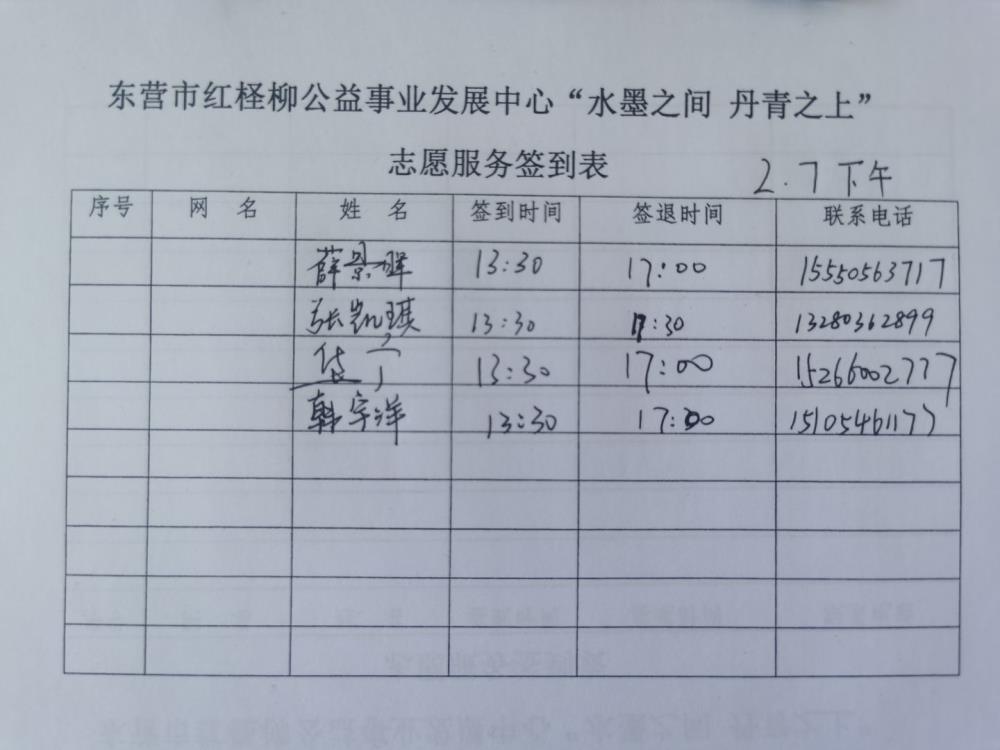 东营市红柽柳公益事业发展中心“水墨之间 丹青之上”
志愿服务签到表 2.7下午
序号 网 名 姓 名 签到时间 签退时间 联系电话
薛景 13:30 17:00 15550563717
张凯琪 13:30 17:30 13280362899
13:30 17:00 15266002777
韩宇洋 13:30 17:00 15105461177